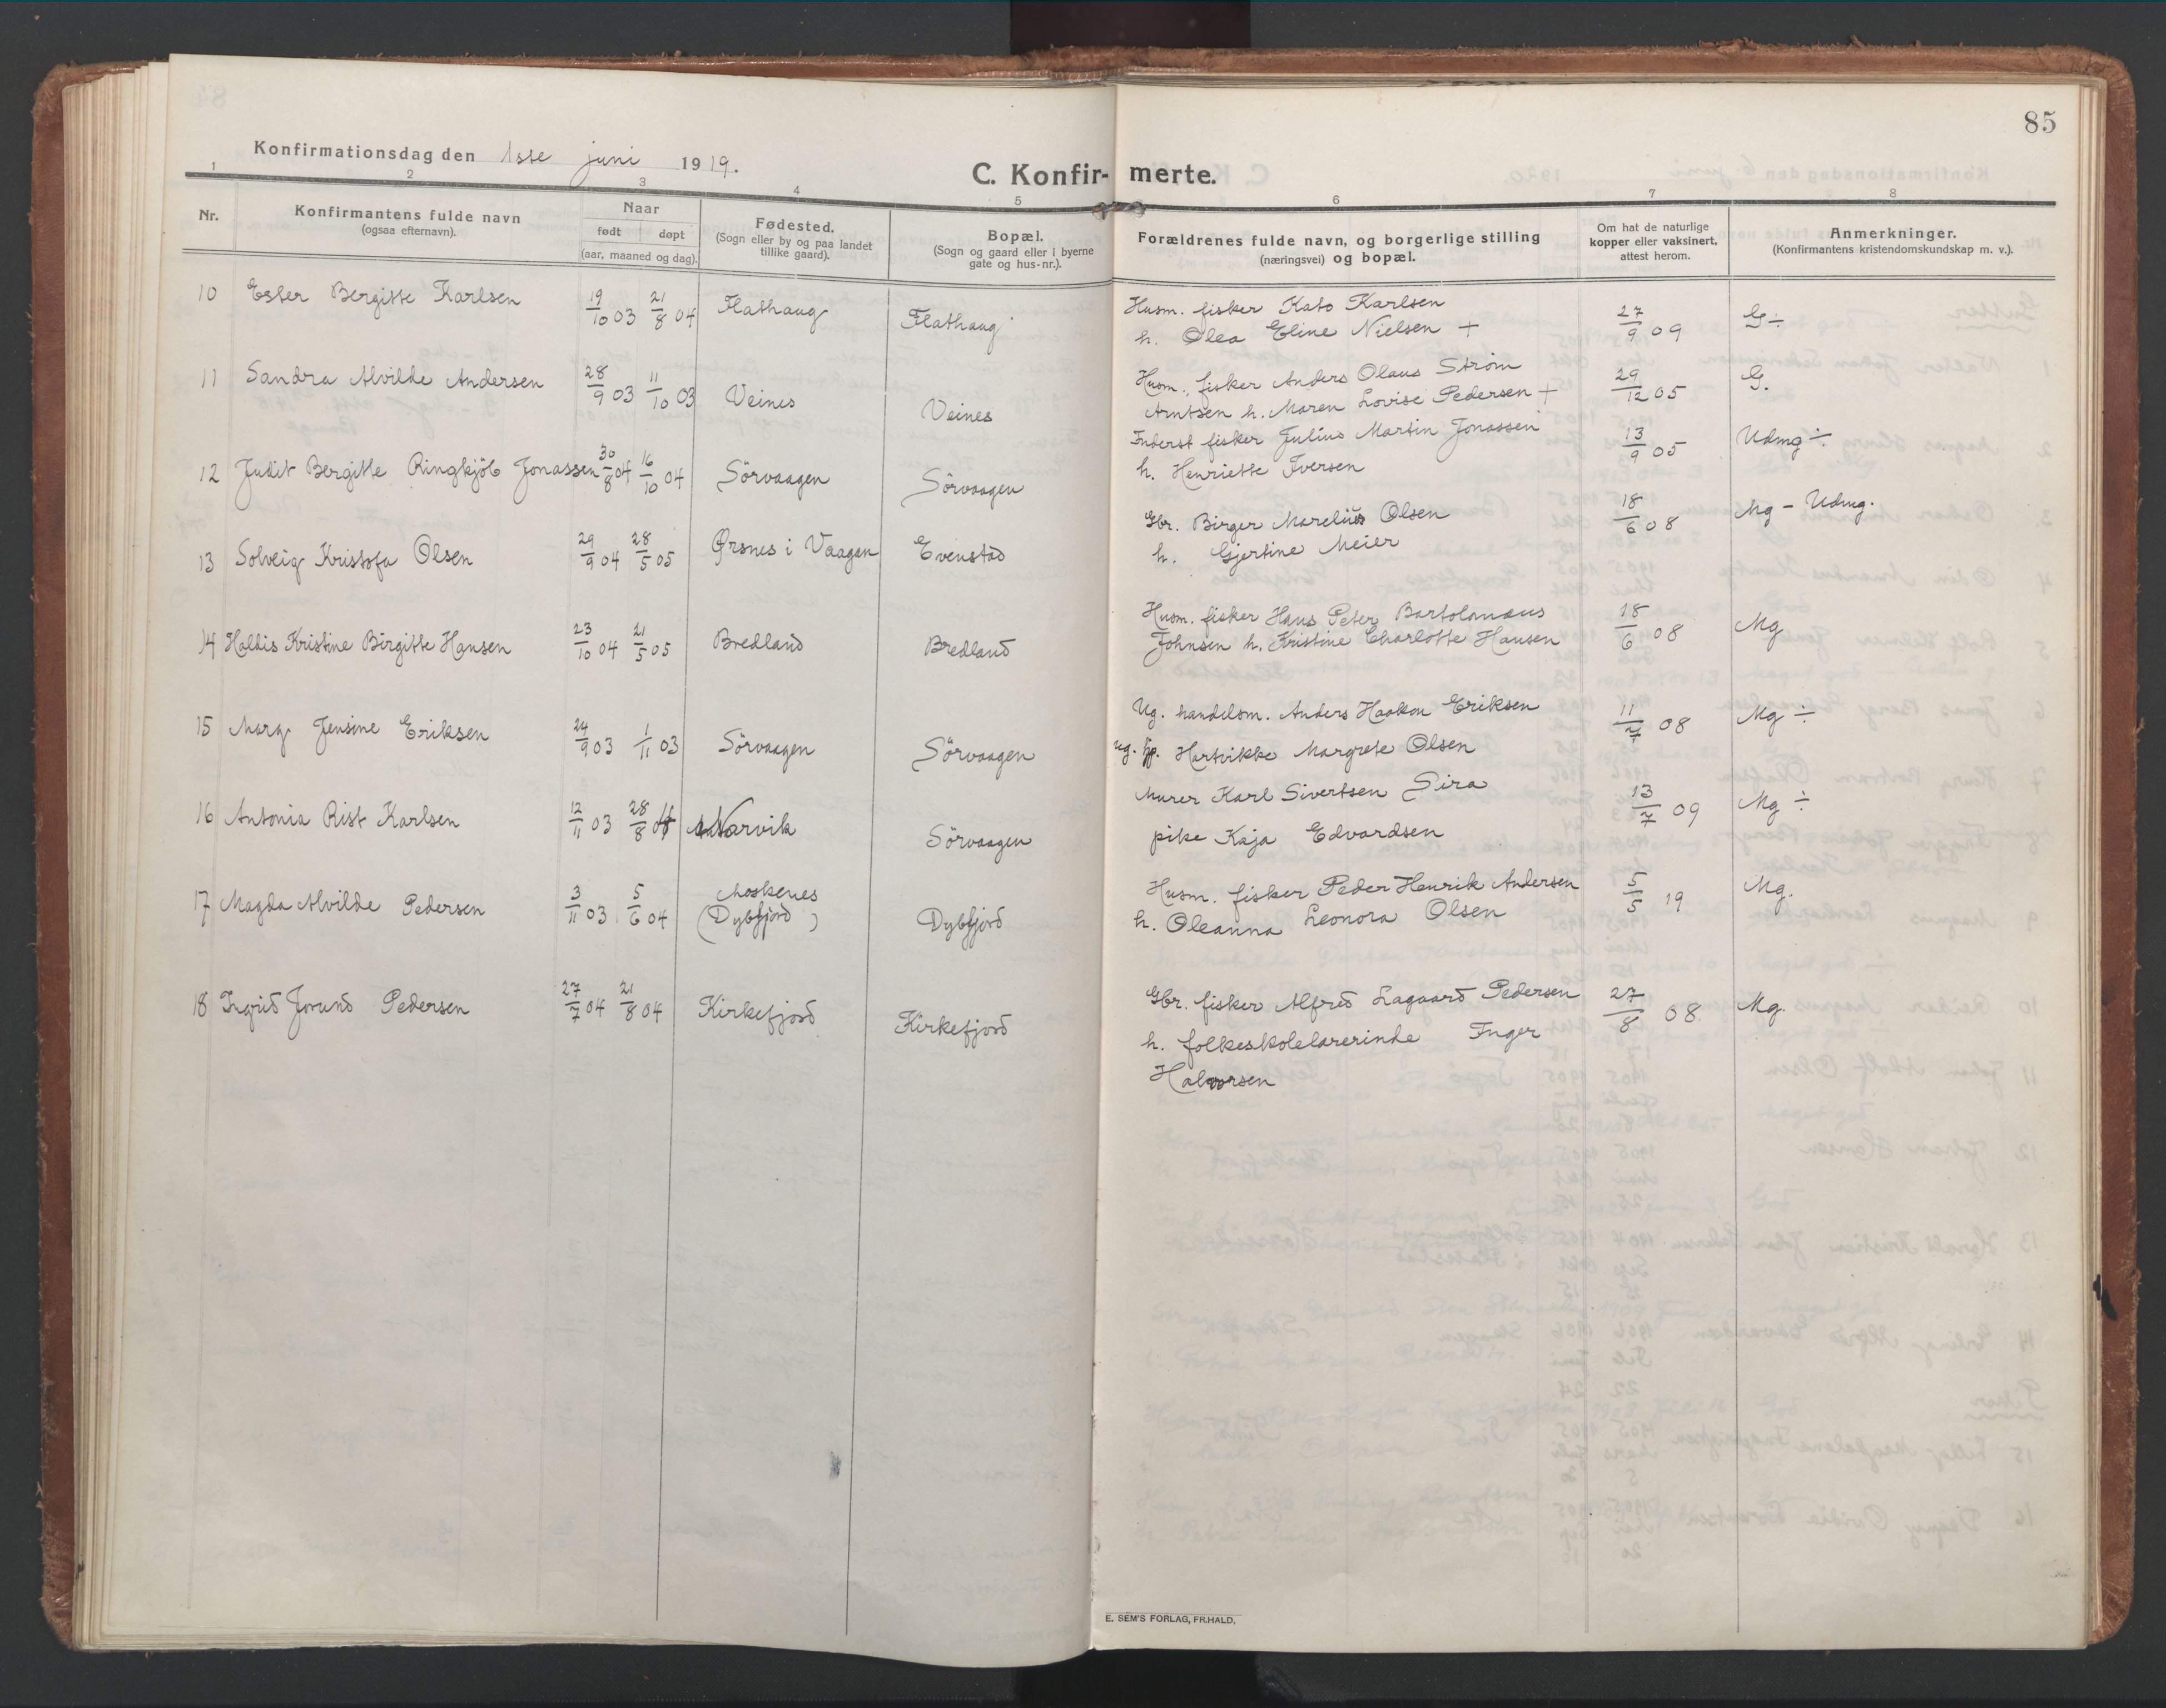 85
Konfirmationsdag den 1ste juni 1919.
C. Konfir- merte.
1 2 3 4 5 6 7 8
Nr.
Konfirmantens fulde navn
(ogsaa efternavn).
Naar
født døpt
(aar, maaned og dag).
Fødested.
(Sogn eller by og paa landet
tillike gaard).
Bopæl.
(Sogn og gaard eller i byerne
gate og hus-nr.).
Forældrenes fulde navn, og borgerlige stilling
(næringsvei) og bopæl.
Om hat de naturlige
kopper eller vaksinert,
attest herom.
Anmerkninger.
(Konfirmantens kristendomskundskap m. v.).
10 Ester Bergitte Karlsen 19/10 03 21/8 04 Flathaug Flathaug Husm. fisker Kato Karlsen 27/9 09 G ÷
h. Olea Eline Nielsen +
11 Sandra Alvilde Andersen 28/9 03 11/10 03 Veines Veines Husm. fisker Anders Olaus Strøm 29/12 05 G.
Arntsen h. Maren Lovise Pedersen +
12 Judit Bergitte Ringkjöb Jonassen 30/8 04 16/10 04 Sörvaagen Sörvaagen Inderst fisker Julius Martin Jonassen 13/9 05 Udmg ÷
h. Henriette Iversen
13 Solveig Kristofa Olsen 29/9 04 28/5 05 Ørsnes i Vaagan Evenstad Gbr. Birger Marelius Olsen 18/6 08 Mg - Udmg.
h. Gjertine Meier
14 Haldis Kristine Birgitte Hansen 23/10 04 21/5 05 Bredland Bredland Husm. fisker Hans Peter Bartolomæus 18/6 08 Mg
Johnsen h. Kristine Charlotte Hansen
15 Marg Jensine Eriksen 24/9 03 1/11 03 Sörvaagen Sörvaagen Ug. handelsm. Anders Haakon Eriksen 11/7 08 Mg ÷
ug. hp. Hartvikke Margrete Olsen
16 Antonia Rist Karlsen 12/11 03 28/8 04 Narvik Sörvaagen Murer Karl Sivertsen Sira 13/7 09 Mg ÷
pike Kaja Edvardsen
17 Magda Alvilde Pedersen 3/11 03 5/6 04 Moskenes
(Dybfjord) Dybfjord Husm. fisker Peder Henrik Andersen 5/5 19 Mg.
h. Oleanna Leonora Olsen
18 Ingrid Jorund Pedersen 27/7 04 21/8 04 Kirkefjord Kirkefjord Gbr. fisker Alfred Lagaard Pedersen 27/8 08 Mg.
h. folkeskolelærerinde Inger
Halvorsen
E. SEM'S FORLAG, FR.HALD.